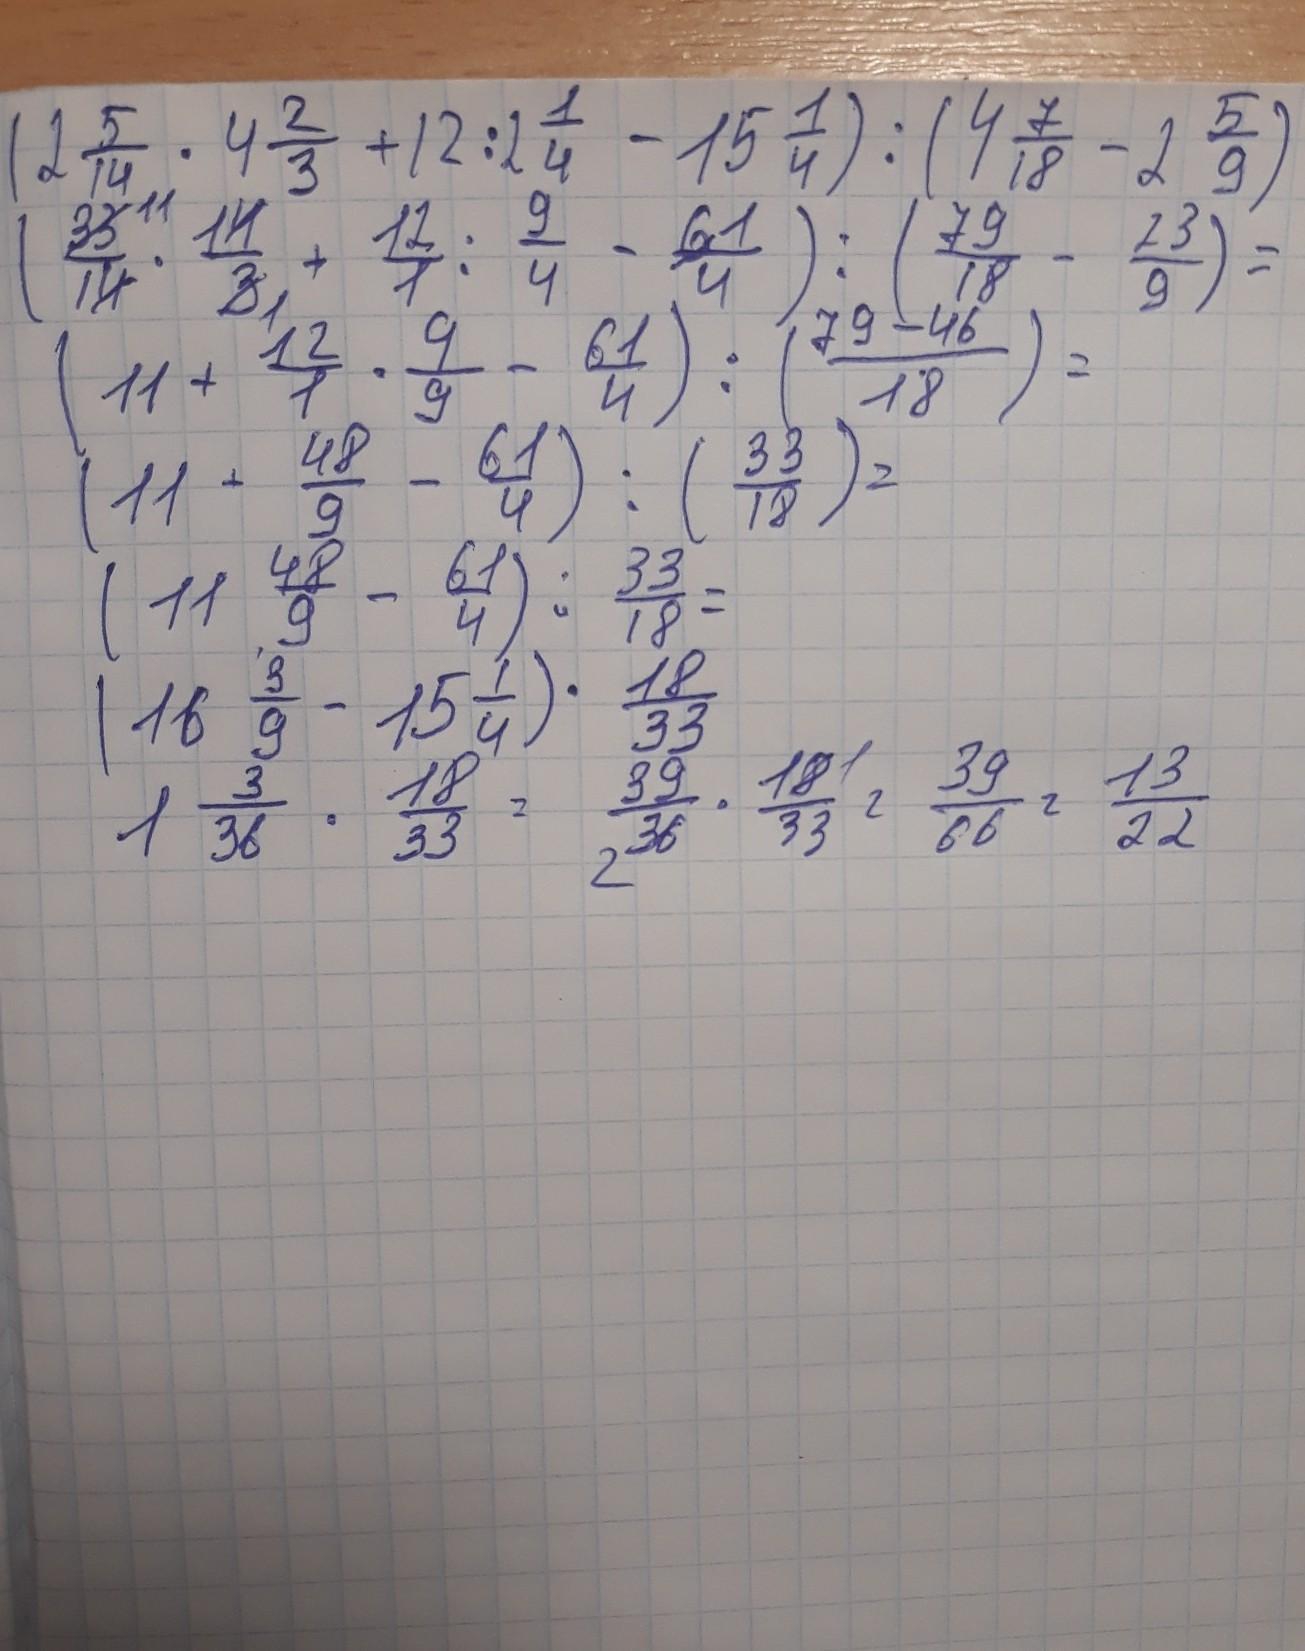 (2 5/14 · 4 2/3 + 12 : 2 1/4 - 15 1/4) : (4 7/18 - 2 5/9)
(33 11/14 · 14/3 1 + 12/1 : 9/4 - 61/4) : (79/18 - 23/9) =
(11 + 12/1 · 4/9 - 61/4) : ((79-46)/18) =
(11 + 48/9 - 61/4) : (33/18) =
(11 48/9 - 61/4) : 33/18 =
(16 3/9 - 15 1/4) · 18/33
1 3/36 · 18/33 = 39/36 2 · 18 1/33 = 39/66 = 13/22